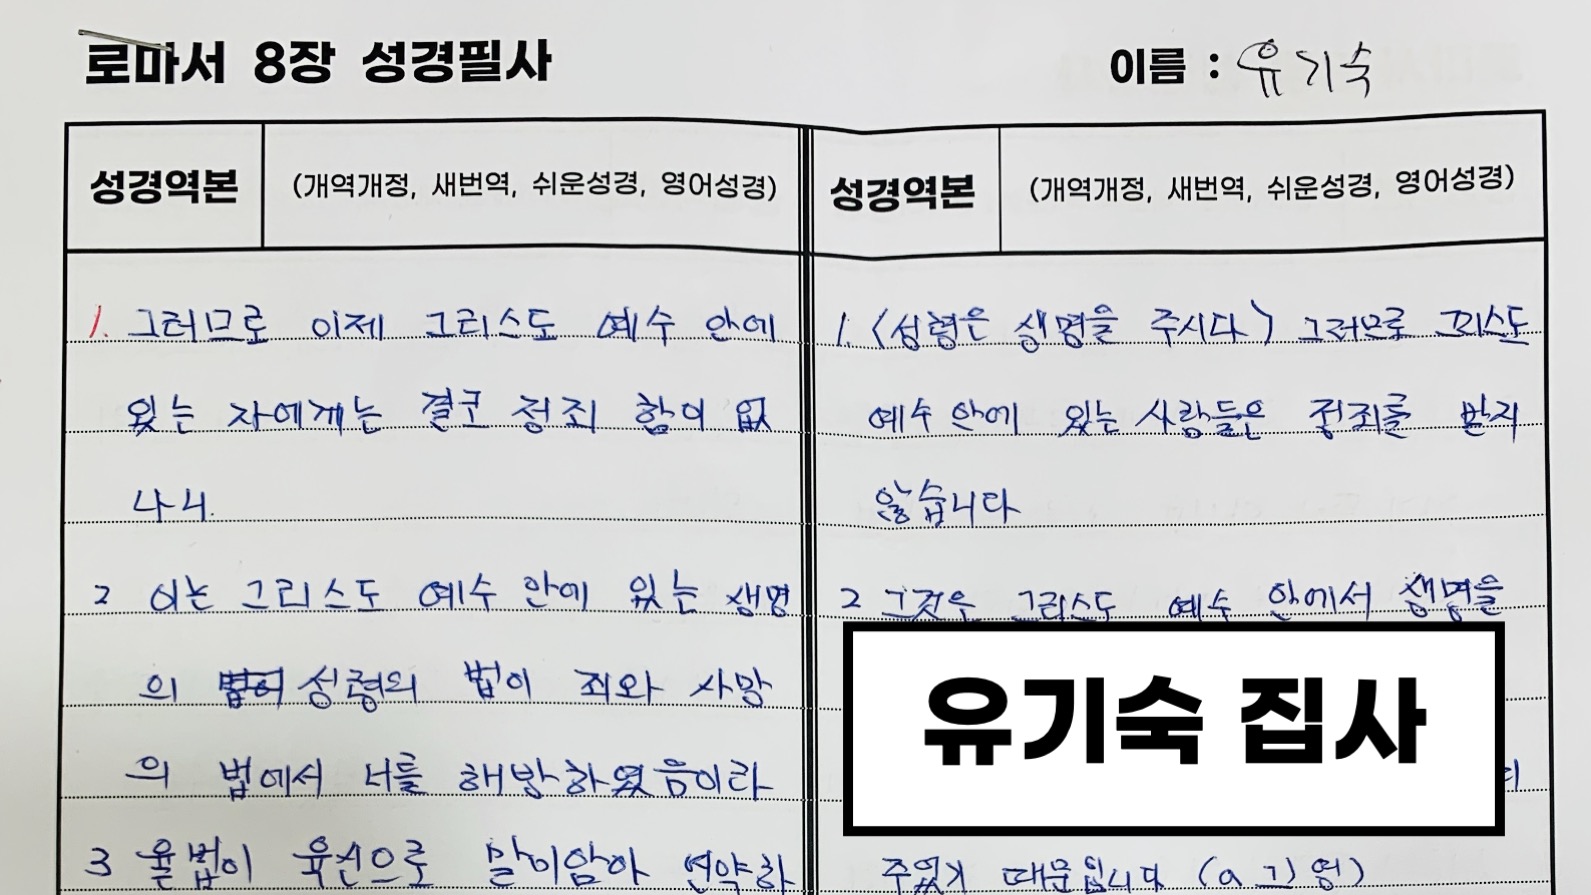 로마서 8장 성경필사
이름 : 유기숙
성경역본 (개역개정, 새번역, 쉬운성경, 영어성경)
1. 그러므로 이제 그리스도 예수 안에
있는 자에게는 결코 정죄 함이 없
나니.
2 이는 그리스도 예수 안에 있는 생명
의 성령의 법이 죄와 사망
의 법에서 너를 해방하였음이라
3 율법이 육신으로 말미암아 연약하
성경역본 (개역개정, 새번역, 쉬운성경, 영어성경)
1. (성령은 생명을 주시다) 그러므로 그리스도
예수 안에 있는 사람들은 정죄를 받지
않습니다
2 그것은 그리스도 예수 안에서 생명을
주었기 때문입니다
유기숙 집사